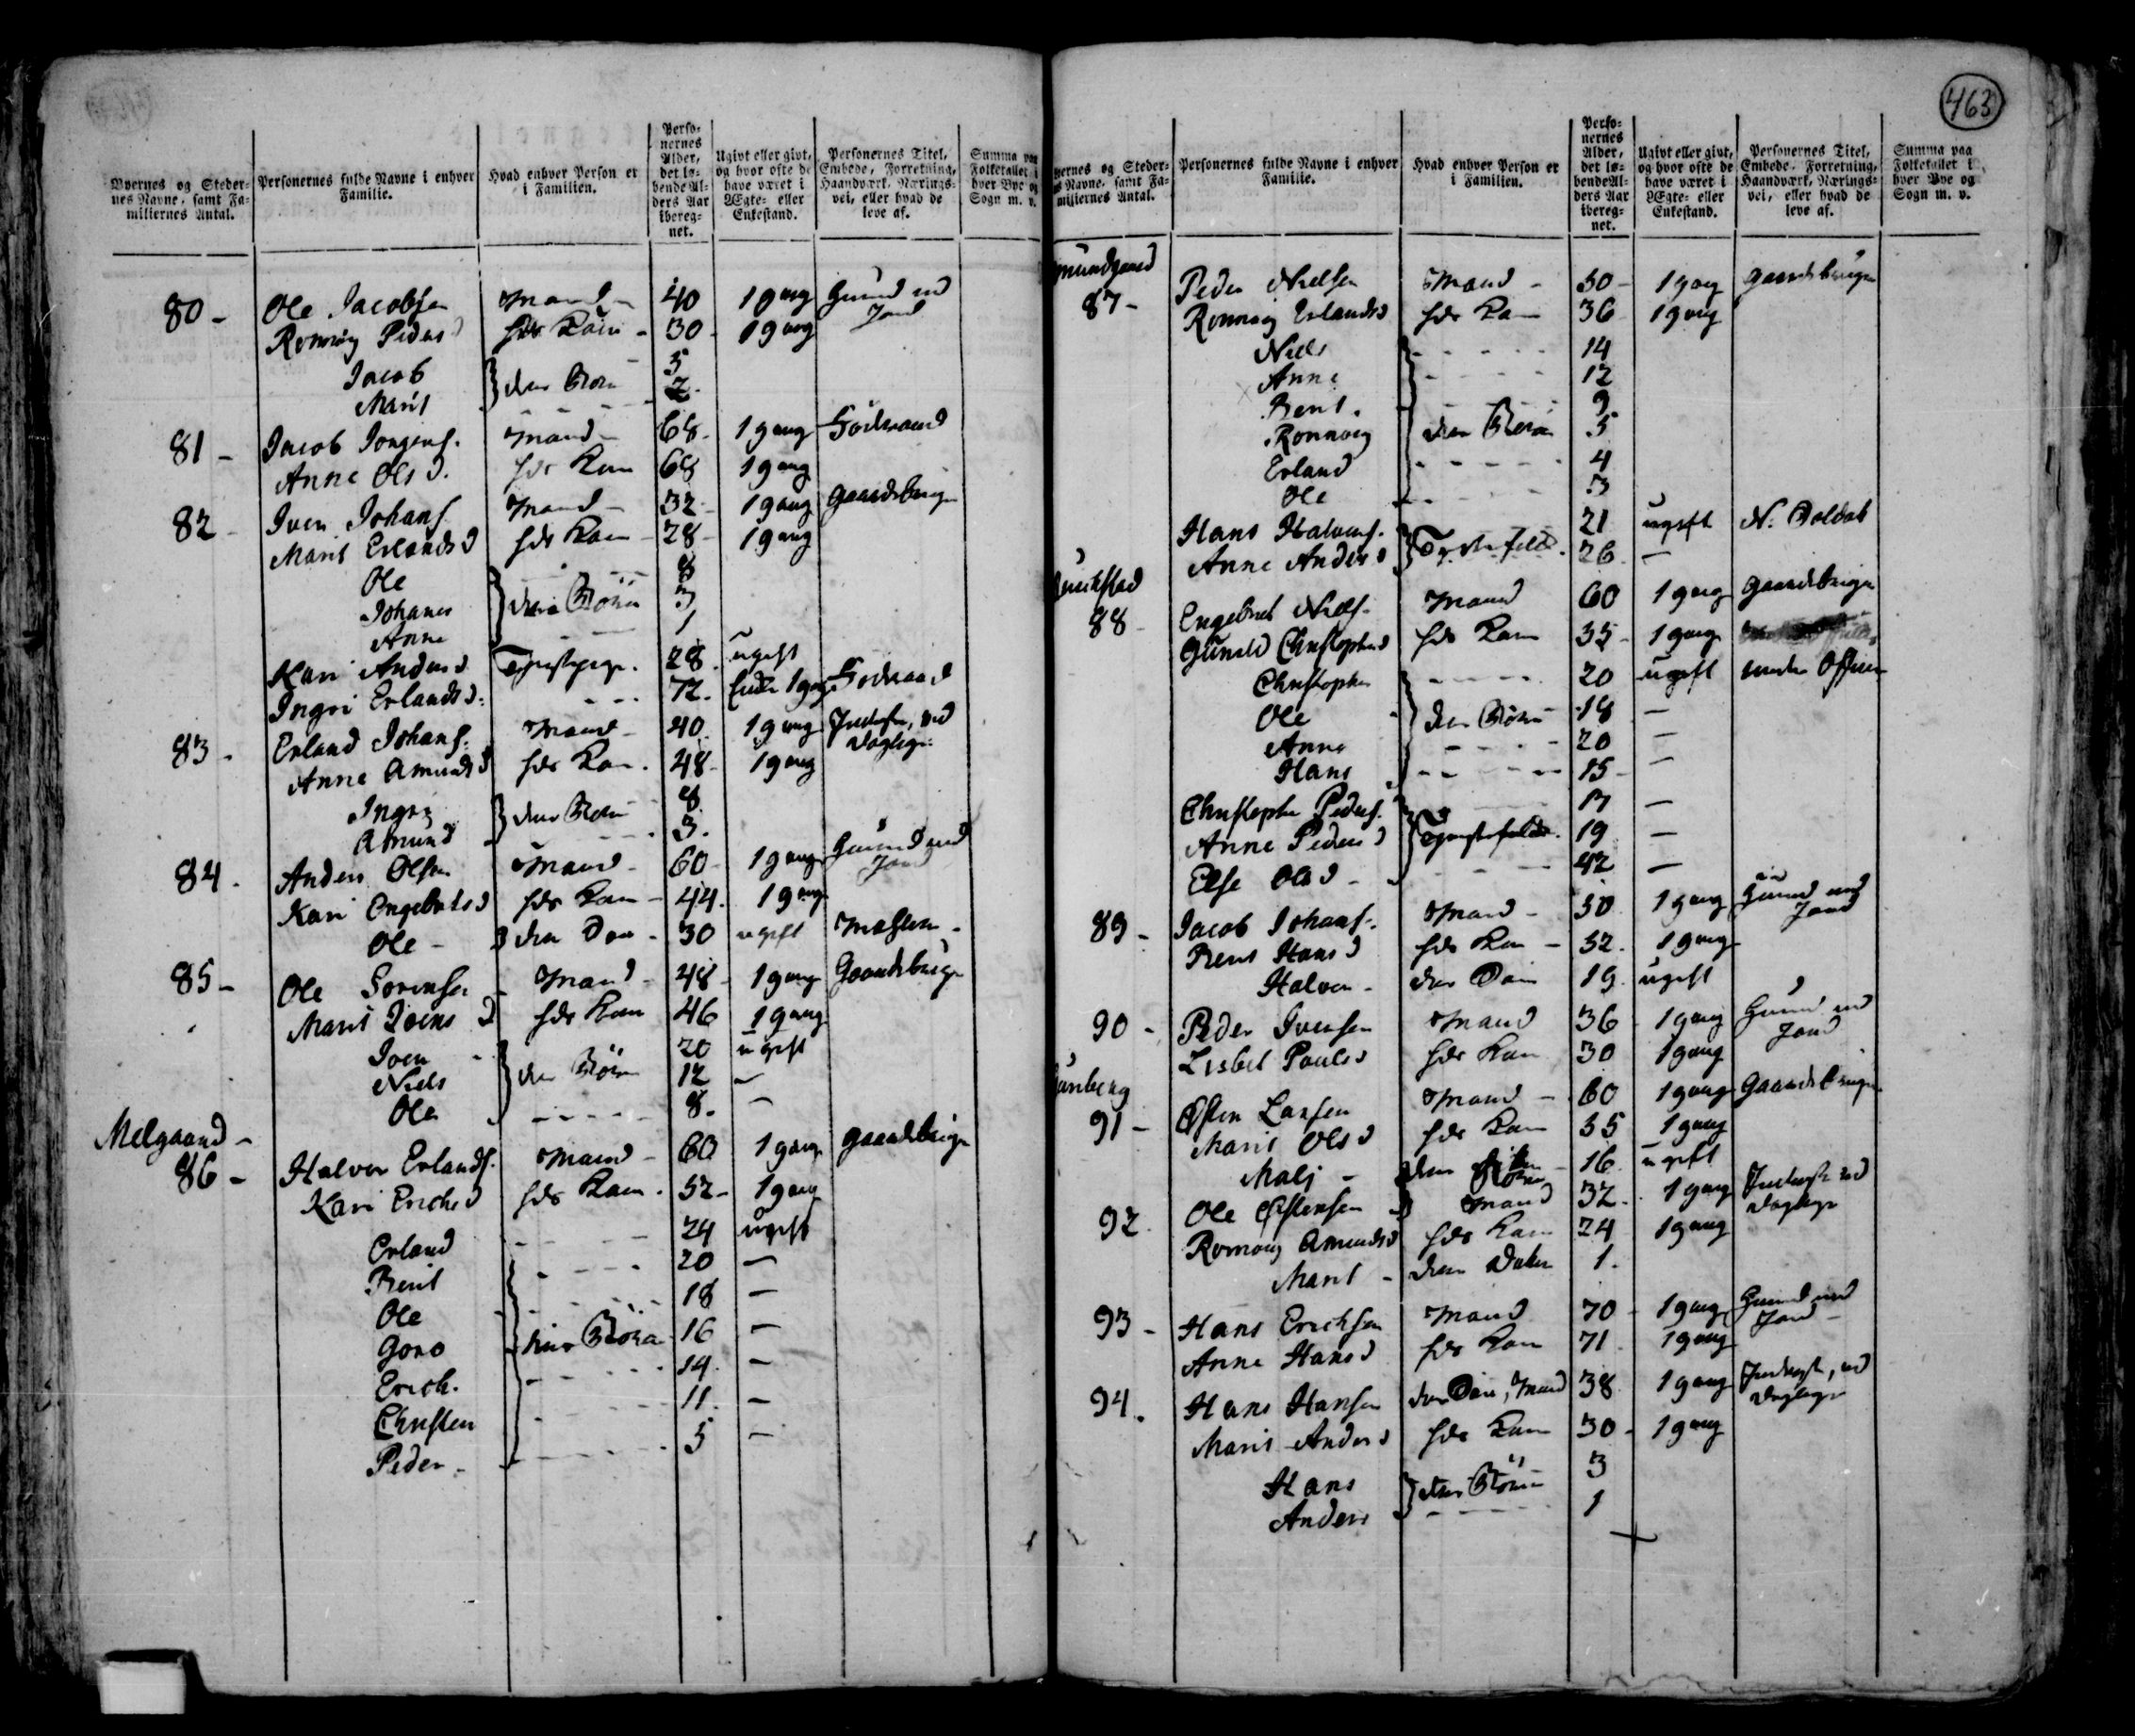 463
Byernes og Steder-
nes Navne, samt Fa-
miliernes Antal.
Personernes fulde Navne i enhver
Familie.
Hvad enhver Person er
i Familien.
Perso-
nernes
Alder,
det lø-
bende Al-
ders Aar
ibereg-
net.
Ugivt eller givt,
og hvor ofte de
have været i
Ægte- eller
Enkestand.
Personernes Titel,
Embede, Forretning,
Haandværk, Nærings-
vei, eller hvad de
leve af.
Summa paa
Folketallet i
hver Bye og
Sogn m. v.
80 - Ole Jacobsen Mand - 40 1 gang Huusmd ud
Jord
Ronnøg Peders D hds Kone - 30 - 1 gang
Jacob 5
Marit } deres Børn 2 -
81 - Jacob Jongens. Mand - 68 - 1 gang Føderaad
Anne Ols D. hds Kone 68 1 gang
82 - Iven Johans. Mand - 32 - 1 gang Gaardbruger
Marit Erlands D hds Kone - 28 - 1 gang
Ole 8
Johanes } deres Børn 3
Anne 1
Kari Anders D Tienstepige. 28. ugift
Ingri Erlands D: - - - 72. Enke 1 gang Føderaad
83 - Erland Johans. Mand - 40. 1 gang Inderste, ved
Dagleje
Anne Amunds D hds Kone. 48 - 1 gang
Ingri 8
Amund } deres Børn 3.
84. Anders Olsen Mand - 60 - 1 gang Huusmd med
Jord
Kari Engebrets D hds Kone - 44. 1 gang
Ole - deres Søn - 30 ugift
85 - Ole Sørensen Mand - 48 - 1 gang Gaardbruger
Marit Ivens D hds Kone 46 1 gang
Iven 20 ugift
Niels } deres Børn 12 —
Ole - - - - 8. —
Melgaard -
86 - Halvor Erlands. Mand - 60 1 gang Gaardbruger
Kari Erichs D hds Kone. 52 - 1 gang
Erland - - - 24 ugift
Berit - - - - 20 —
Ole - - - - 18 —
Goro deres Børn 16 —
Erich. - - - - 14. —
Christen - - - - 11. —
Peder - - - - - 5 —
Byernes og Steder-
nes Navne, samt Fa-
miliernes Antal.
Personernes fulde Navne i enhver
Familie.
Hvad enhver Person er
i Familien.
Perso-
nernes
Alder,
det lø-
bende Al-
ders Aar
ibereg-
net.
Ugivt eller givt,
og hvor ofte de
have været i
Ægte- eller
Enkestand.
Personernes Titel,
Embede, Forretning,
Haandværk, Nærings-
vei, eller hvad de
leve af.
Summa paa
Folketallet i
hver Bye og
Sogn m. v.
87 - Peder Nielsen Mand - 50 - 1 gang Gaardbruger
Ronnøg Erlands D hds Kone 36 1 gang
Niels - - - - - 14
Anne - - - - 12
Berit. 9
Ronnoeg deres Børn 5
Erland - - - - - 4
Ole - - - - 3
Hans Halvors. 21 ugift N. Soldat
Anne Anders D } Tienstefolk. 26 —
88 - Engebret Niels. Mand 60 1 gang Gaardbruger
Gunild Christophers D hds Kone 35 - 1 gang
Christopher - - - - - 20 ugift
Ole deres Børn 18 —
Anne - - - - 20 —
Hans - - - - 15 - —
Christopher Peders. 17 —
Anne Peders D } Tienstefolk. 19 —
Else Ols D - - - 42 —
89 - Jacob Johans. Mand - 50 1 gang Huusmd med
Jord
Berit Hans D hds Kone - 52. 1 gang
Halvor - deres Søn 19. ugift
90 - Peder Ivensen Mand 36 1 gang Huusmd med
Jord
Lisbet Pouls D hds Kone 30 1 gang
91 - Østen Larsen Mand - 60 1 gang Gaardbruger
Marit Ols D hds Kone 55 1 gang
Malj - deres 16 ugift
92 Ole Østensen Mand 32. 1 gang Inderste ved
Dagleje
Ronnoug Amunds D hds Kone 24 1 gang
Marit - deres Datter 1.
93 - Hans Erichsen Mand 70 - 1 gang Huusmd med
Jord -
Anne Hans D hds Kone 71 1 gang
94. Hans Hansen deres Søn, Mand 38 1 gang Inderste, ved
Dagleje
Marit Anders D hds Kone 30 - 1 gang
Hans } deres Børn 3
Anders - - - - 1